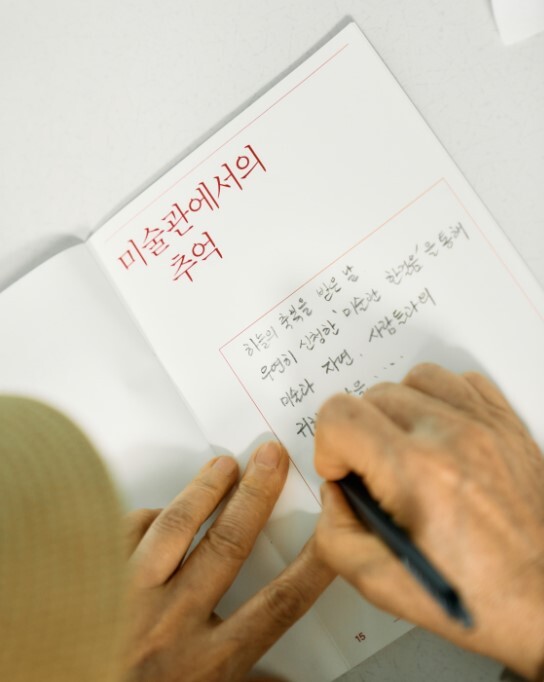 미술관에서의
추억
하늘의 축복을 받은 날
우연히 신청한 '미술관 한걸음'을 통해
미술과 자연. 사람들과의
15